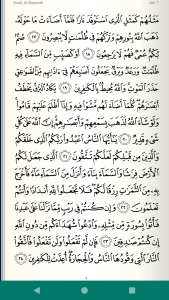 Surah Al-Baqarah
Juz' 1
مَثَلُهُمْ كَمَثَلِ ٱلَّذِى ٱسْتَوْقَدَ نَارًا فَلَمَّآ أَضَآءَتْ مَا حَوْلَهُۥ
ذَهَبَ ٱللَّهُ بِنُورِهِمْ وَتَرَكَهُمْ فِى ظُلُمَـٰتٍ لَّا يُبْصِرُونَ ١٧
صُمٌّۢ بُكْمٌ عُمْىٌ فَهُمْ لَا يَرْجِعُونَ ١٨ أَوْ كَصَيِّبٍ مِّنَ ٱلسَّمَآءِ فِيهِ
ظُلُمَـٰتٌ وَرَعْدٌ وَبَرْقٌ يَجْعَلُونَ أَصَـٰبِعَهُمْ فِىٓ ءَاذَانِهِم مِّنَ ٱلصَّوَٰعِقِ
حَذَرَ ٱلْمَوْتِ وَٱللَّهُ مُحِيطٌۢ بِٱلْكَـٰفِرِينَ ١٩ يَكَادُ ٱلْبَرْقُ يَخْطَفُ
أَبْصَـٰرَهُمْ كُلَّمَآ أَضَآءَ لَهُم مَّشَوْا۟ فِيهِ وَإِذَآ أَظْلَمَ عَلَيْهِمْ قَامُوا۟
وَلَوْ شَآءَ ٱللَّهُ لَذَهَبَ بِسَمْعِهِمْ وَأَبْصَـٰرِهِمْ إِنَّ ٱللَّهَ عَلَىٰ كُلِّ
شَىْءٍ قَدِيرٌ ٢٠ يَـٰٓأَيُّهَا ٱلنَّاسُ ٱعْبُدُوا۟ رَبَّكُمُ ٱلَّذِى خَلَقَكُمْ
وَٱلَّذِينَ مِن قَبْلِكُمْ لَعَلَّكُمْ تَتَّقُونَ ٢١ ٱلَّذِى جَعَلَ لَكُمُ
ٱلْأَرْضَ فِرَٰشًا وَٱلسَّمَآءَ بِنَآءً وَأَنزَلَ مِنَ ٱلسَّمَآءِ مَآءً فَأَخْرَجَ
بِهِۦ مِنَ ٱلثَّمَرَٰتِ رِزْقًا لَّكُمْ فَلَا تَجْعَلُوا۟ لِلَّهِ أَندَادًا وَأَنتُمْ
تَعْلَمُونَ ٢٢ وَإِن كُنتُمْ فِى رَيْبٍ مِّمَّا نَزَّلْنَا عَلَىٰ عَبْدِنَا
فَأْتُوا۟ بِسُورَةٍ مِّن مِّثْلِهِۦ وَٱدْعُوا۟ شُهَدَآءَكُم مِّن دُونِ ٱللَّهِ
إِن كُنتُمْ صَـٰدِقِينَ ٢٣ فَإِن لَّمْ تَفْعَلُوا۟ وَلَن تَفْعَلُوا۟ فَٱتَّقُوا۟
ٱلنَّارَ ٱلَّتِى وَقُودُهَا ٱلنَّاسُ وَٱلْحِجَارَةُ أُعِدَّتْ لِلْكَـٰفِرِينَ ٢٤